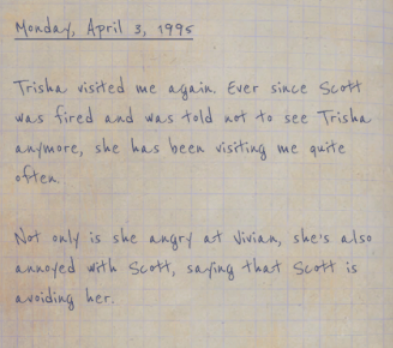 Monday, April 3, 1995
Trisha visited me again. Ever since Scott
was fired and was told not to see Trisha
anymore, she has been visiting me quite
often.
Not only is she angry at Vivian, she's also
annoyed with Scott, saying that Scott is
avoiding her.